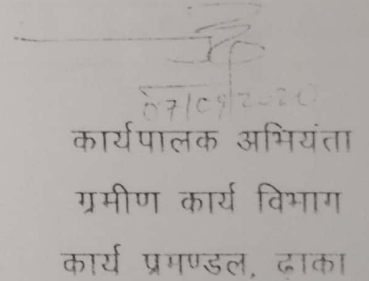 कार्यपालक अभियंता
ग्रमीण कार्य विभाग
कार्य प्रमण्डल, ढ़ाका